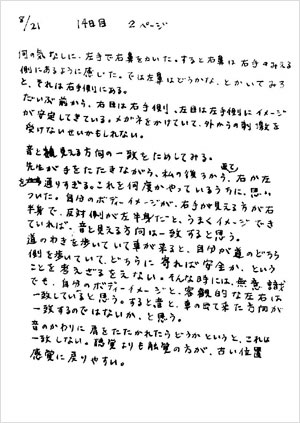 8/21 14日目 2ページ
何の気なしに、左手で右鼻をかいた。すると右鼻は右手のみえる
側にあるように感じた。では左鼻はどうかな、とかいてみる
と、それは右手側にある。
だいぶ前から、右目は右手側、左目は左手側にイメージ
が安定してきている。メガネをかけていて、外からの刺激を
受けないせいかもしれない。
音と見える方向の一致をためしてみる。
先生が手をたたきながら、私の後ろから、右か左
を通りすぎる。これを何度かやっているうちに、思い
ついた。自分のボディーイメージが、右手が見える方が右
半身で、反対側が左半身だと、うまくイメージでき
ていれば、音と見える方向は一致すると思う。
道のわきを歩いていて車が来ると、自分が道のどちら
側を歩いていて、どちらに寄れば安全か、という
ことを考えざるをえない。そんな時には、無意識
でも、自分のボディーイメージと、客観的な左右は
一致していると思う。すると音と、車の出て来た方向が
一致するのではないか、と思う。
音のかわりに肩をたたかれたらどうかというと、これは
一致しない。聴覚よりも触覚の方が、古い位置
感覚に戻りやすい。